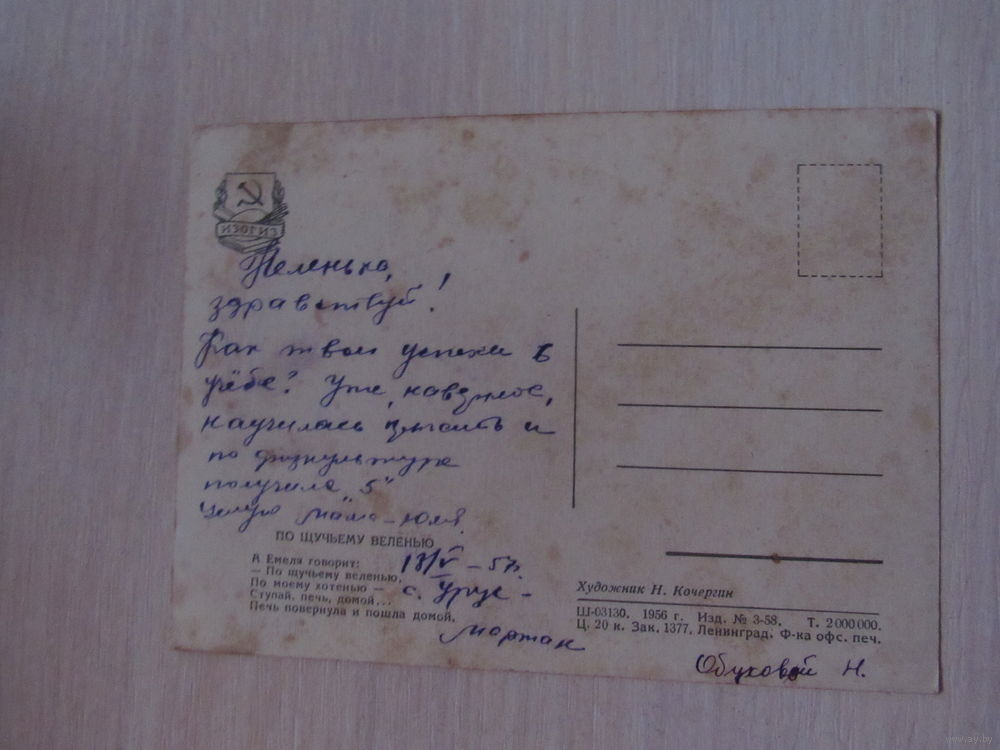 ИЗОГИЗ
Неленька,
здравствуй!
Как твои успехи в
учёбе? Уже, наверное,
научилась прыгать и
по физкультуре
получила „5"
Целую мама – Юля.
ПО ЩУЧЬЕМУ ВЕЛЕНЬЮ
А Емеля говорит:
— По щучьему веленью,
По моему хотенью —
Ступай, печь, домой...
Печь повернула и пошла домой.
18/V – 57г.
с. Урус –
Мартан
Художник Н. Кочергин
Ш-03130. 1956 г. Изд. № 3-58. Т. 2 000 000.
Ц. 20 к. Зак. 1377. Ленинград. Ф-ка офс. печ.
Обуховой Н.
www.ay.by